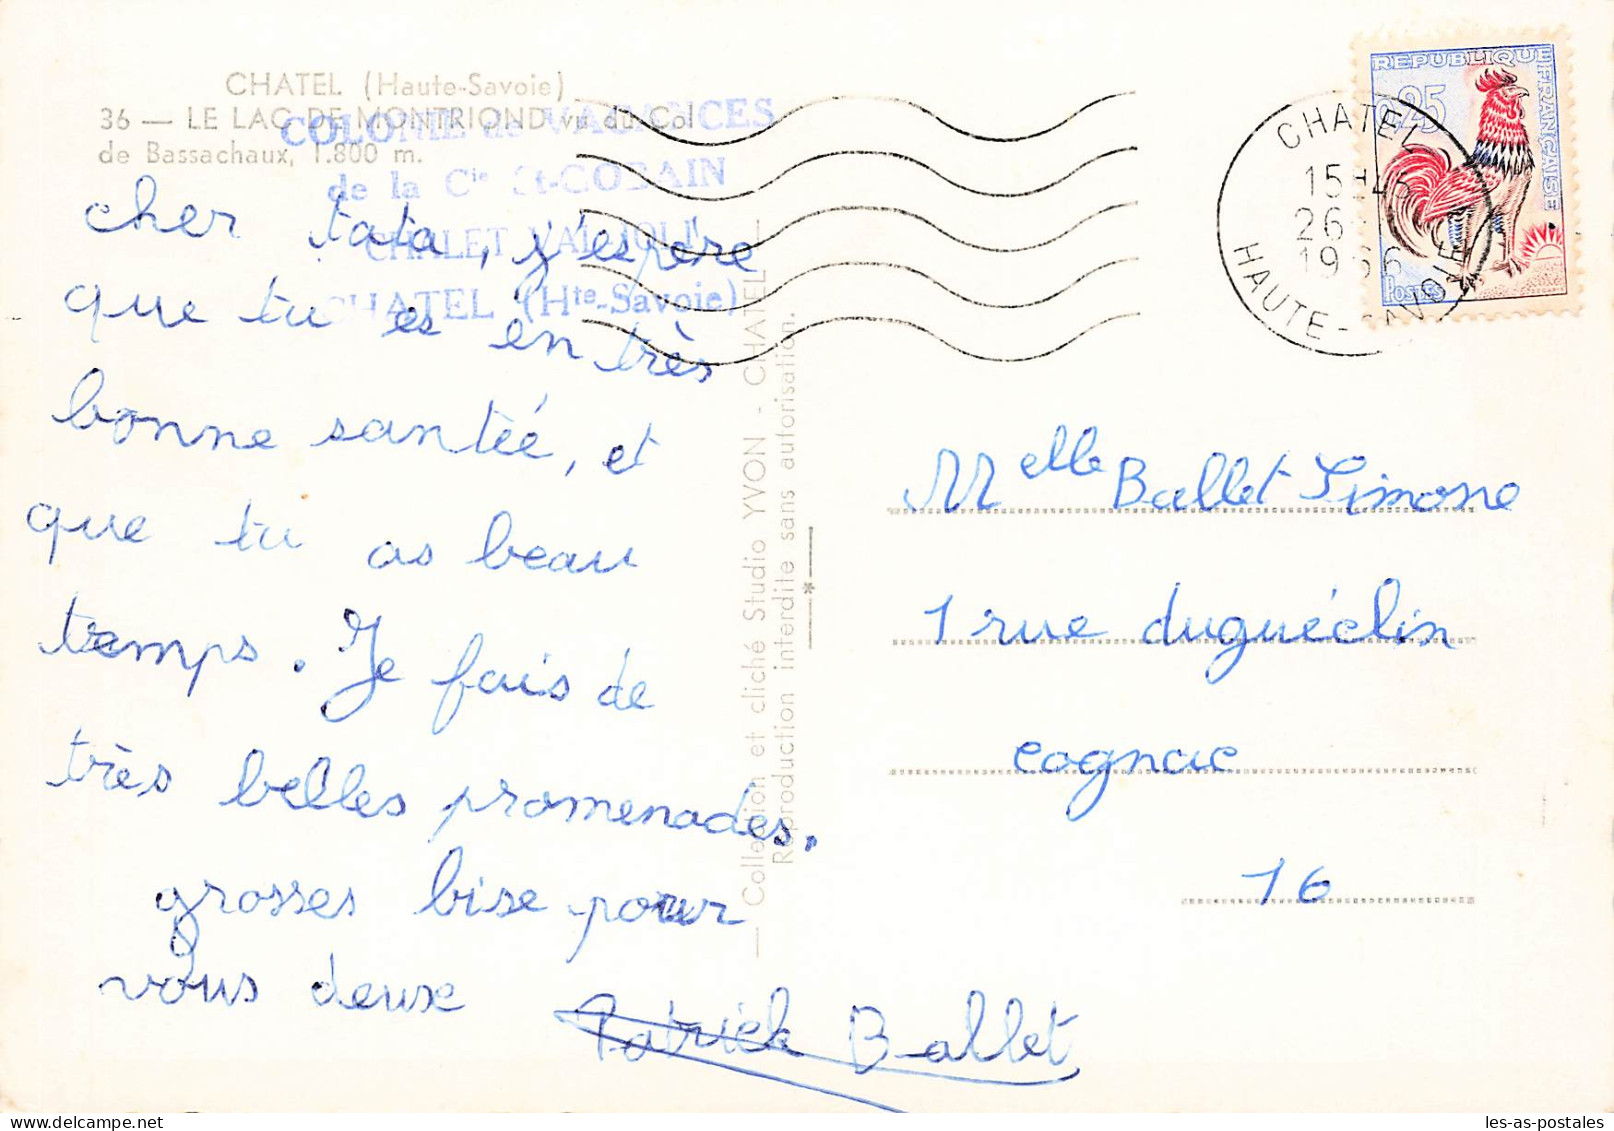 CHATEL (Haute-Savoie)
36 — LE LAC DE MONTRIOND vu du Col
de Bassachaux, 1.800 m.
COLONIE de VACANCES
de la Cie St-GOBAIN
CHALET VAL JOLI
CHATEL (Hte-Savoie)
cher tata, j'espère
que tu es en très
bonne santée, et
que tu as beau
temps. Je fais de
très belles promenades.
grosses bise pour
vous deux
Patrick Ballet
— Collection et cliché Studio YVON - CHATEL —
Reproduction interdite sans autorisation.
CHATEL
15H45
26
1966
HAUTE-SAVOIE
REPUBLIQUE
FRANÇAISE
0,25
POSTES
Melle Ballet Simone
1 rue duguéclin
cognac
16
les-as-postales